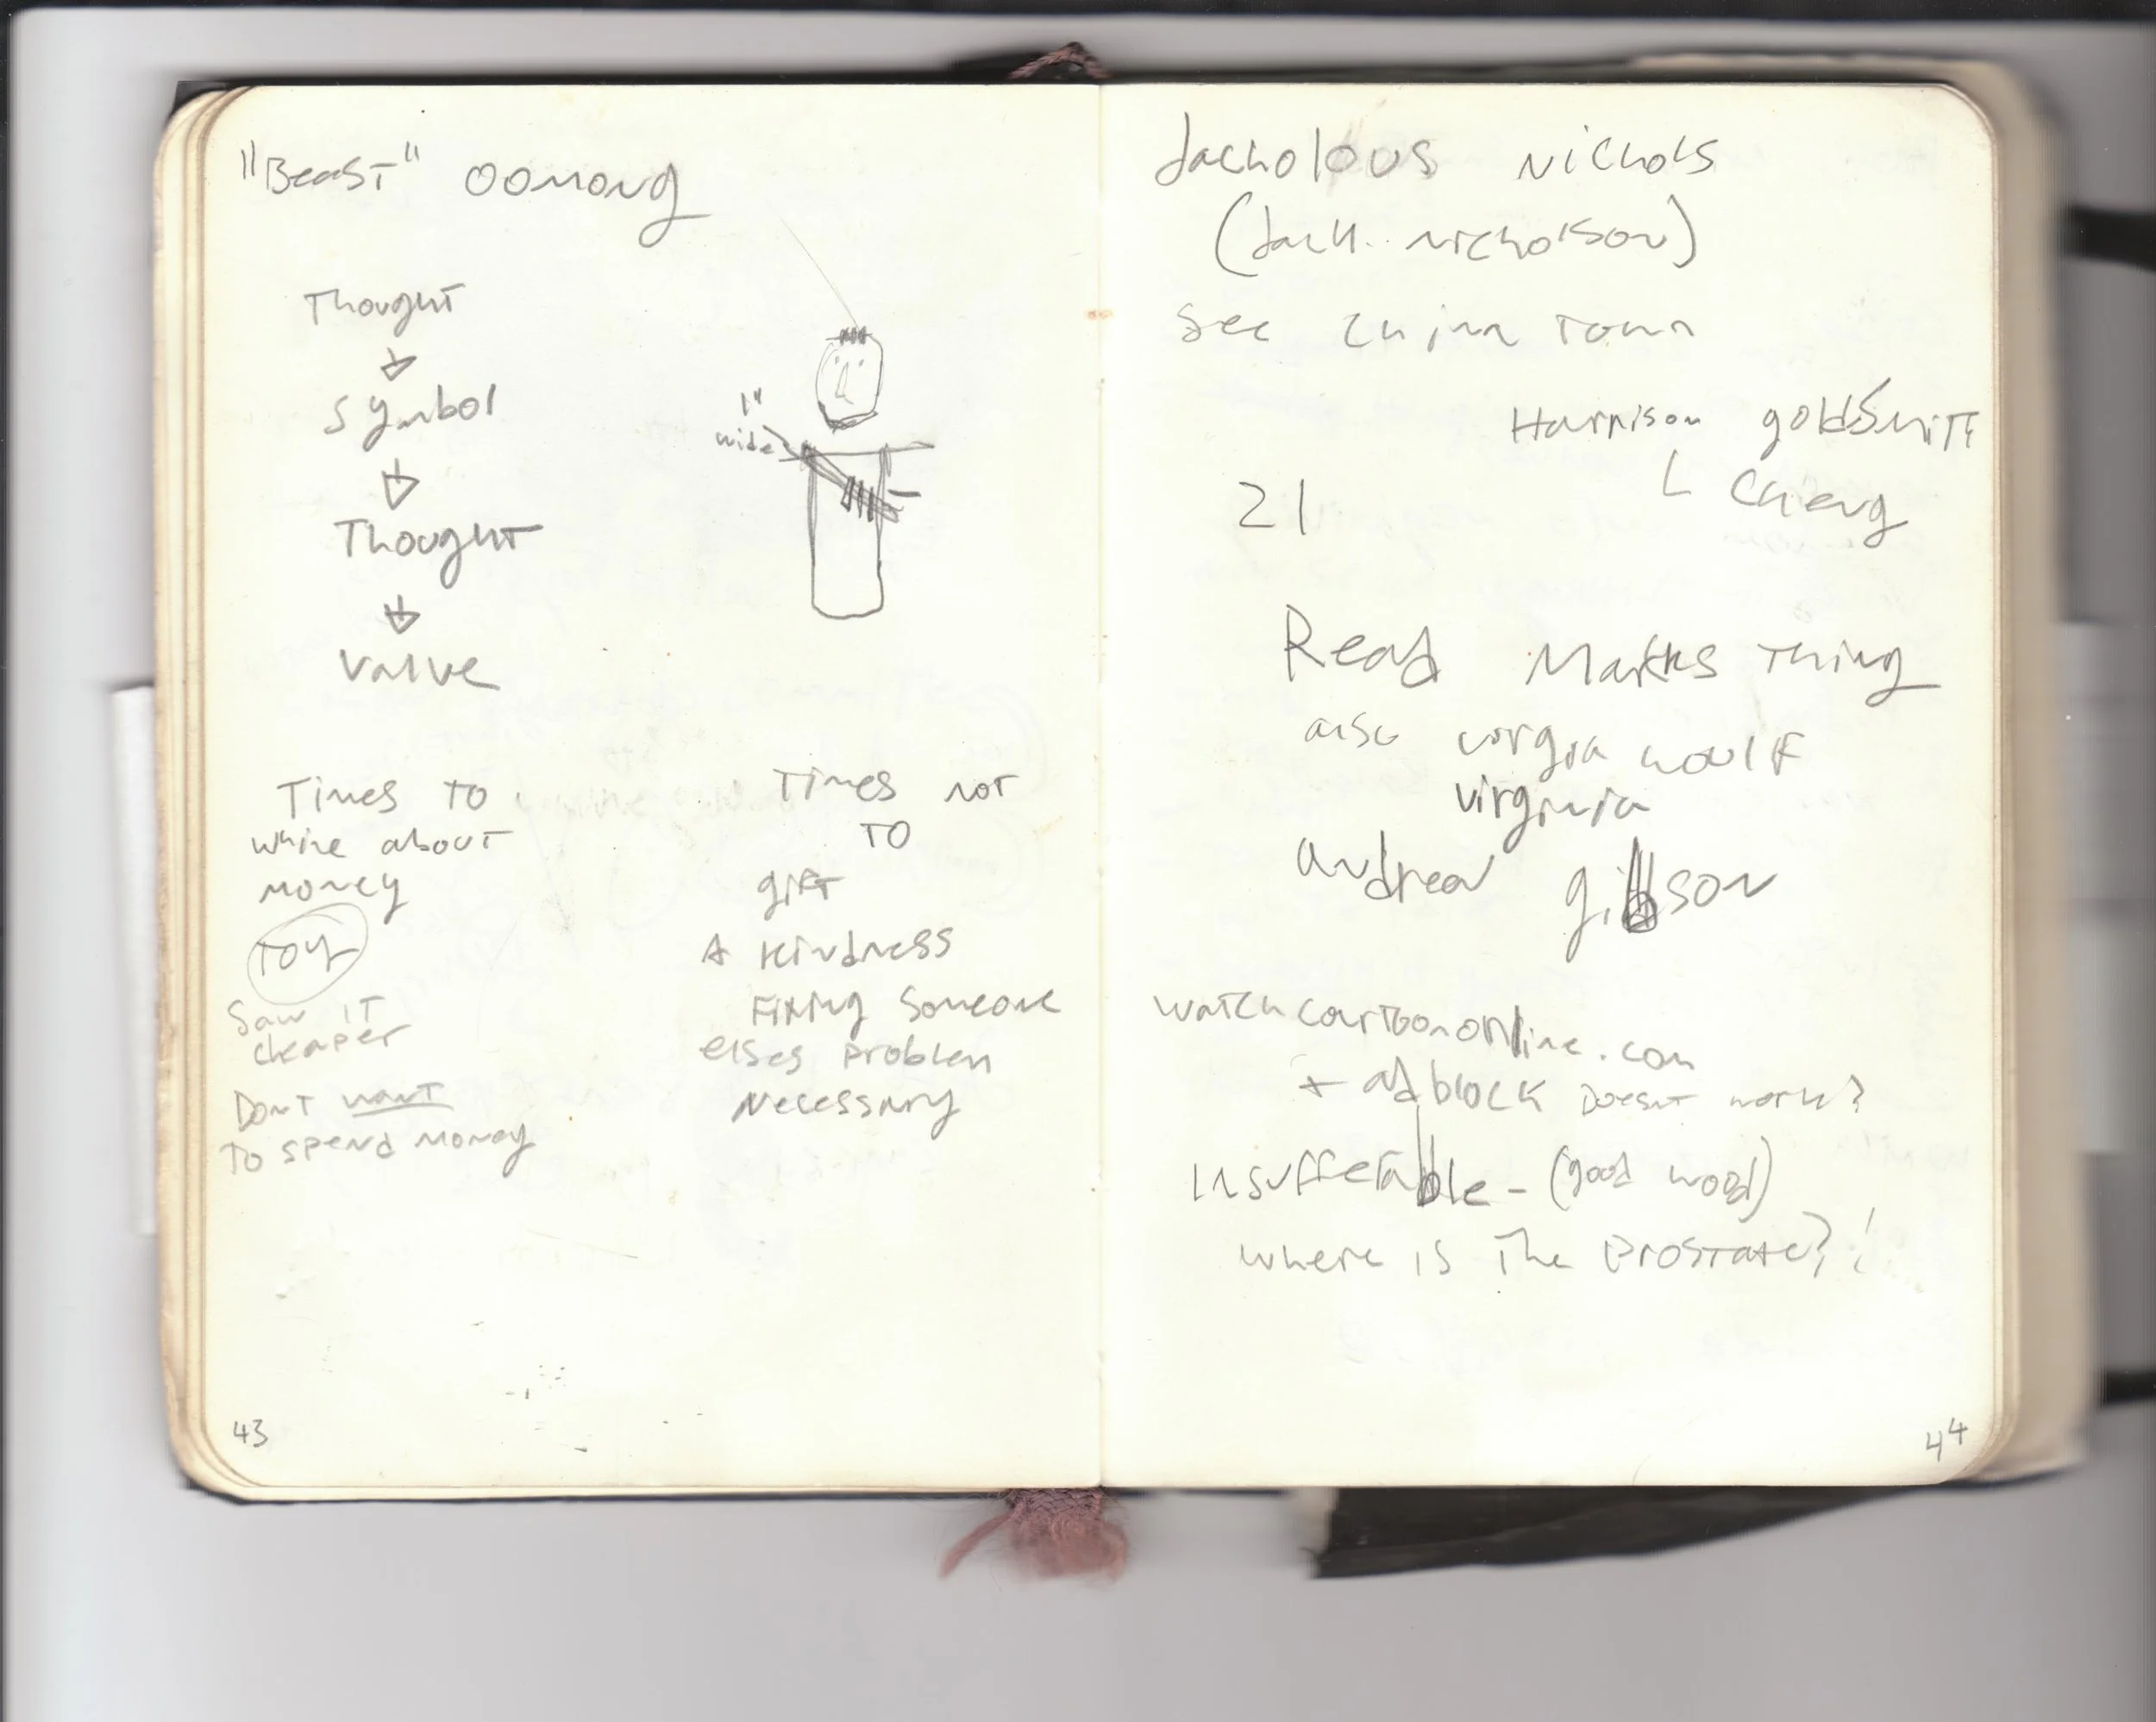 "Beast" oomong
Thought
Symbol
Thought
Value
1"
wide
Times to
whine about
money
Toy
Saw it
cheaper
Dont want
to spend money
Times not
to
gift
A kindness
Fixing someone
elses problem
Necessary
43
Jacholous Nichols
(Jack. nicholson)
See China Town
Harrison goldsmith
Cheng
21
Read Marks Thing
also woulf
virginia
andrew gibson
watchcartoononline.com
+ adblock Doesnt work?
Insufferable - (good word)
where is the prostate?!
44